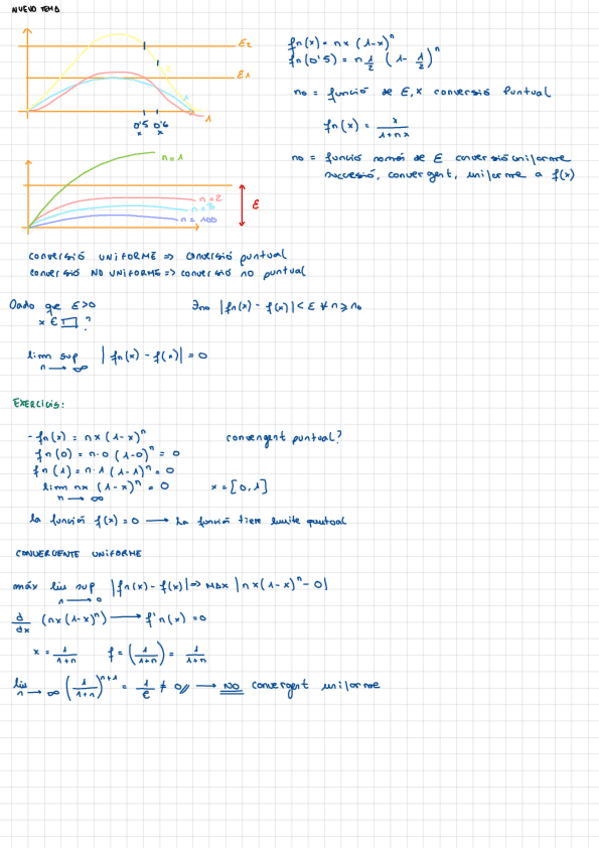 NUEVO TEMA
fn(x) = nx (1-x)^n
fn(0'5) = n 1/2 (1 - 1/2)^n
E2
E1
2
1
0'5 0'6
x x
1
n0 = funció de E, x conversió Puntual
fn(x) = x/(1+nx)
n0 = funció només de E conversió uniforme
successió, convergent, uniforme a f(x)
n=1
n=2
n=3
n=100
E
conversió UNIFORME => conversió puntual
conversió NO UNIFORME => conversió no puntual
Dado que E>0 ∃n0 |fn(x) - f(x)| < E ∀ n ≥ n0
x ∈ □ ?
limn sup |fn(x) - f(x)| = 0
n → ∞
EXERCICIS:
- fn(x) = nx (1-x)^n convengent puntual?
fn(0) = n·0 (1-0)^n = 0
fn(1) = n·1 (1-1)^n = 0
limn nx (1-x)^n = 0 x = [0,1]
n → ∞
la funció f(x) = 0 → La función tiene limite puntual
CONVERGENTE UNIFORME
máx lim sup |fn(x) - f(x)| => MAX |nx(1-x)^n - 0|
n → 0
d/dx (nx(1-x)^n) → f'n(x) = 0
x = 1/(1+n) f = (1/(1+n)) = 1/(1+n)
lim n → ∞ (1/(1+n))^(n+1) = 1/e ≠ 0// → NO convergent uniforme